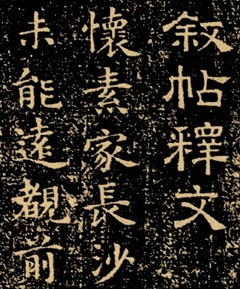 叙帖釋文
懷素家長沙
未能遠覩前